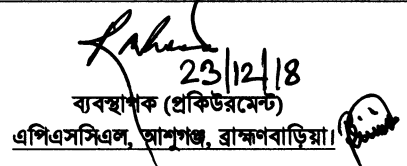 23/12/18
ব্যবস্থাপক (প্রকিউরমেন্ট)
এপিএসসিএল, আশুগঞ্জ, ব্রাহ্মণবাড়িয়া।